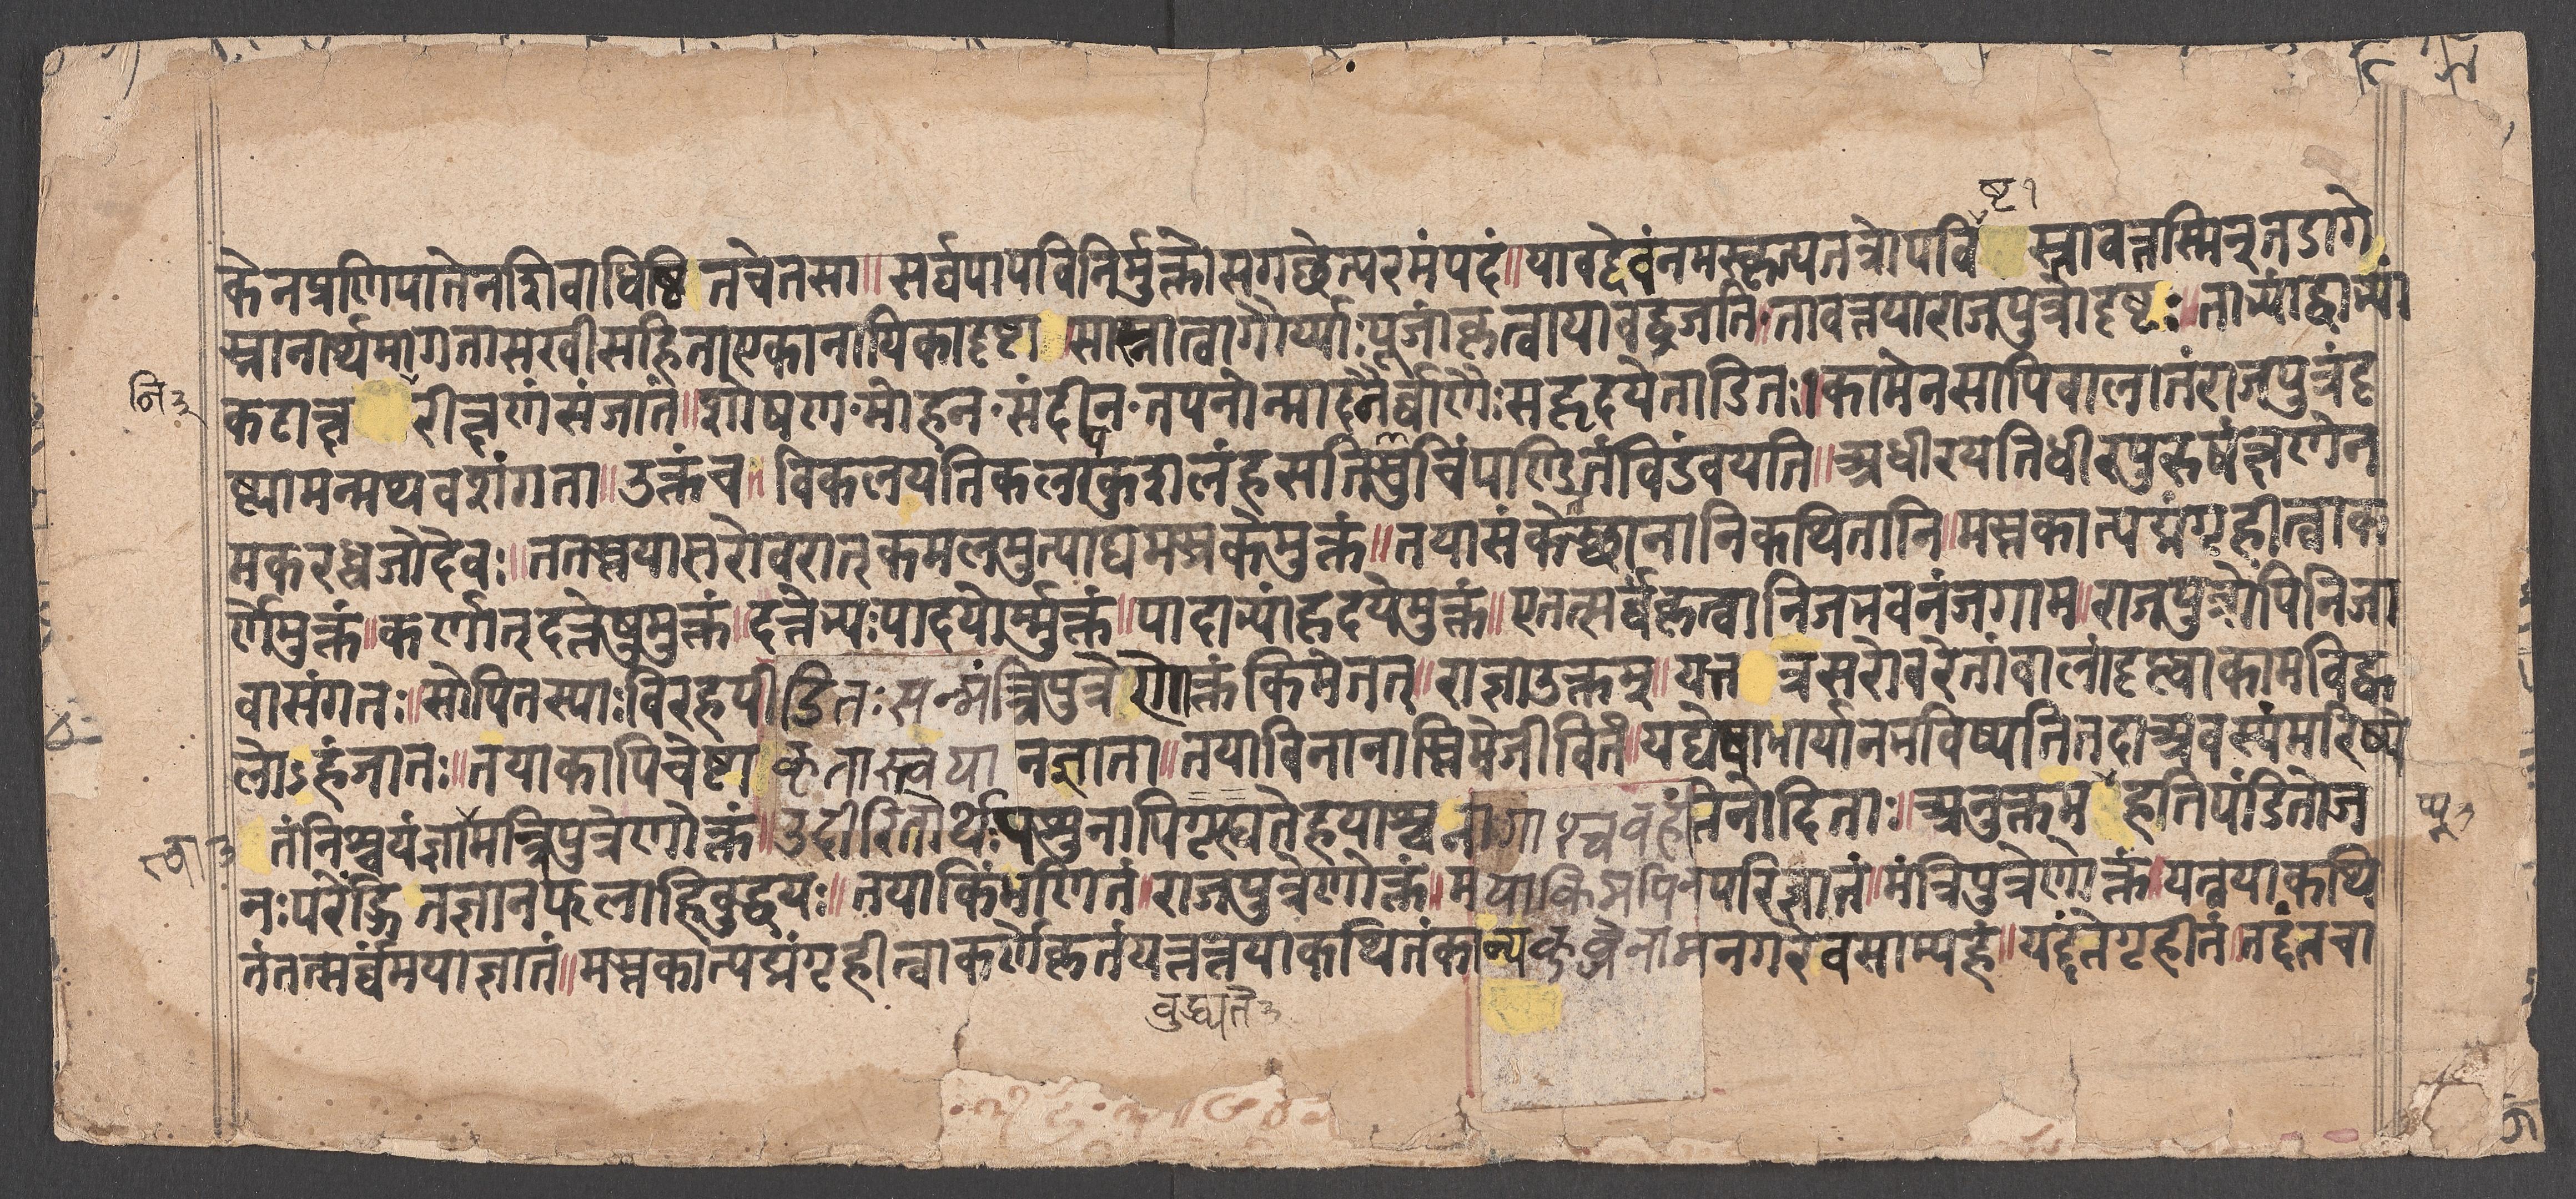 ष्ट१
केनप्रणिपातेनशिवाधिष्ठितचेतसा॥सर्व्वपापविनिर्मुक्तोसगछेत्परमंपदं॥यावद्देवंनमस्कृत्यतत्रोपविस्तावत्तस्मिन्तडागे
स्नानार्थमागतासखीसहिताएकानायिकादृष्टा सास्नात्वागौर्य्याःपूजांकृत्वायावद्व्रजति॥तावत्तयाराजपुत्रोदृष्टः॥ताभ्यांद्वाभ्यां
नि३
कटाक्ष रीक्षणंसंजातं॥शोषण·मोहन·संदीपन·तपनोन्मादनैर्व्वाणैःसहृदयेताडितः॥कामेनसापिबालातंराजपुत्रंदृ
ष्ट्वामन्मथवशंगता॥उक्तंच॥विकलयतिकलाकुशलंहसतिसुचिंपण्डितंविडंबयति॥अधीरयतिधीरपुरुषंक्षणेन
मकरध्वजोदेवः॥ततस्तयासरोवरात्कमलमुत्पाद्यमस्तकेमुक्तं॥तयासंकेतस्थानानिकथितानि॥मस्तकात्पद्मंगृहीत्वाक
र्णेमुक्तं॥कर्णात्दन्तेषुमुक्तं॥दन्तेभ्यःपादयोर्म्मुक्तं॥पादाभ्यांहृदयेमुक्तं॥एतत्सर्व्वंकृत्वानिजभवनंजगाम॥राजपुत्रोपिनिजा
वासंगतः॥सोपितस्याःविरहपीडितःसन्मंत्रिपुत्रेणोक्तंकिमेतत्॥राज्ञाउक्तम्॥यत्त त्रसरोवरेतांबालांदृष्ट्वाकामविह्व
लोऽहंजातः॥तयाकापिचेष्टाकृतास्त्वयानज्ञाता॥तयाविनानास्तिमेजीवितं॥यद्येषाभार्यानभविष्यतितदाअवस्यंमरिष्ये
तंनिश्चयंज्ञात्वामन्त्रिपुत्रेणोक्तं॥उदीरितोर्थःपशुनापिगृह्यतेहयाश्चनागाश्चवहंतिनोदिताः॥अनुक्तम हतिपंडितोज
प्यू३
नःपरेङ्गितज्ञानफलाहिबुद्धयः॥तयाकिंभणितं॥राजपुत्रेणोक्तं॥मयाकिमपिनपरिज्ञातं॥मंत्रिपुत्रेणोक्तं॥यत्तयाकथि
तंतत्सर्व्वंमयाज्ञातं॥मस्तकात्पद्मंगृहीत्वाकर्णेकृतंयत्तत्तयाकथितंकान्यकुब्जेनामनगरेवसाम्यहं॥यद्दंतेगृहीतं॥तद्दंतचा
बुद्ध्यते३